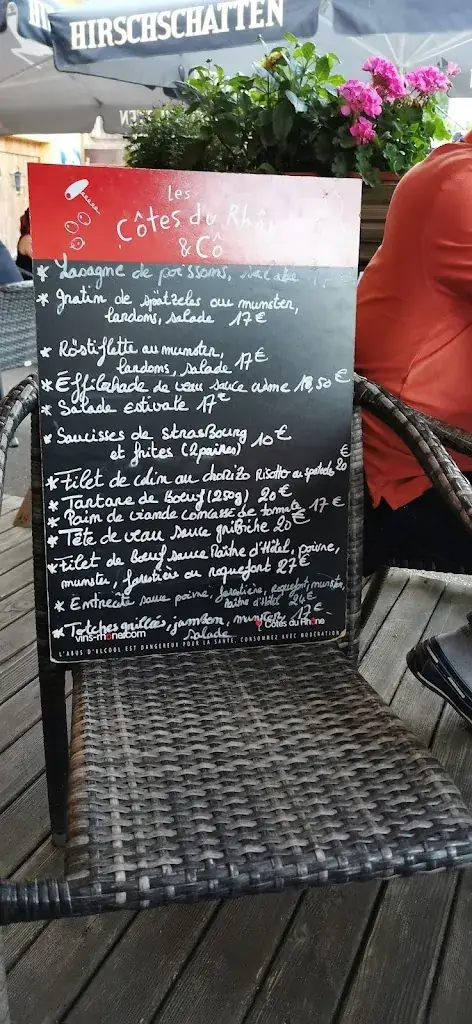 HIRSCHSCHATTEN
les
Côtes du Rhône
& Cô
* Lasagne de poissons, salade
* Gratin de spätzeles au munster,
lardons, salade 17€
* Röstiflette au munster,
lardons, salade 17€
* Effilochade de veau sauce crème 18,50€
* Salade estivale 17€
* Saucisses de Strasbourg
et frites (2 paires) 10€
* Filet de colin au chorizo Risotto au 20€
* Tartare de Boeuf (250g) 20€
* Pain de viande concassé de tomate 17€
* Tête de veau sauce gribiche 20€
* Filet de Boeuf sauce Maître d'Hôtel, poivre,
munster, forestière ou roquefort 27€
* Entrecôte sauce poivre, forestière, roquefort, munster,
Maître d'Hôtel 24€
* Totches grillées, jambon, munster, 17€
salade
vins-rhone.com
Côtes du Rhône
L'ABUS D'ALCOOL EST DANGEREUX POUR LA SANTÉ, CONSOMMEZ AVEC MODÉRATION